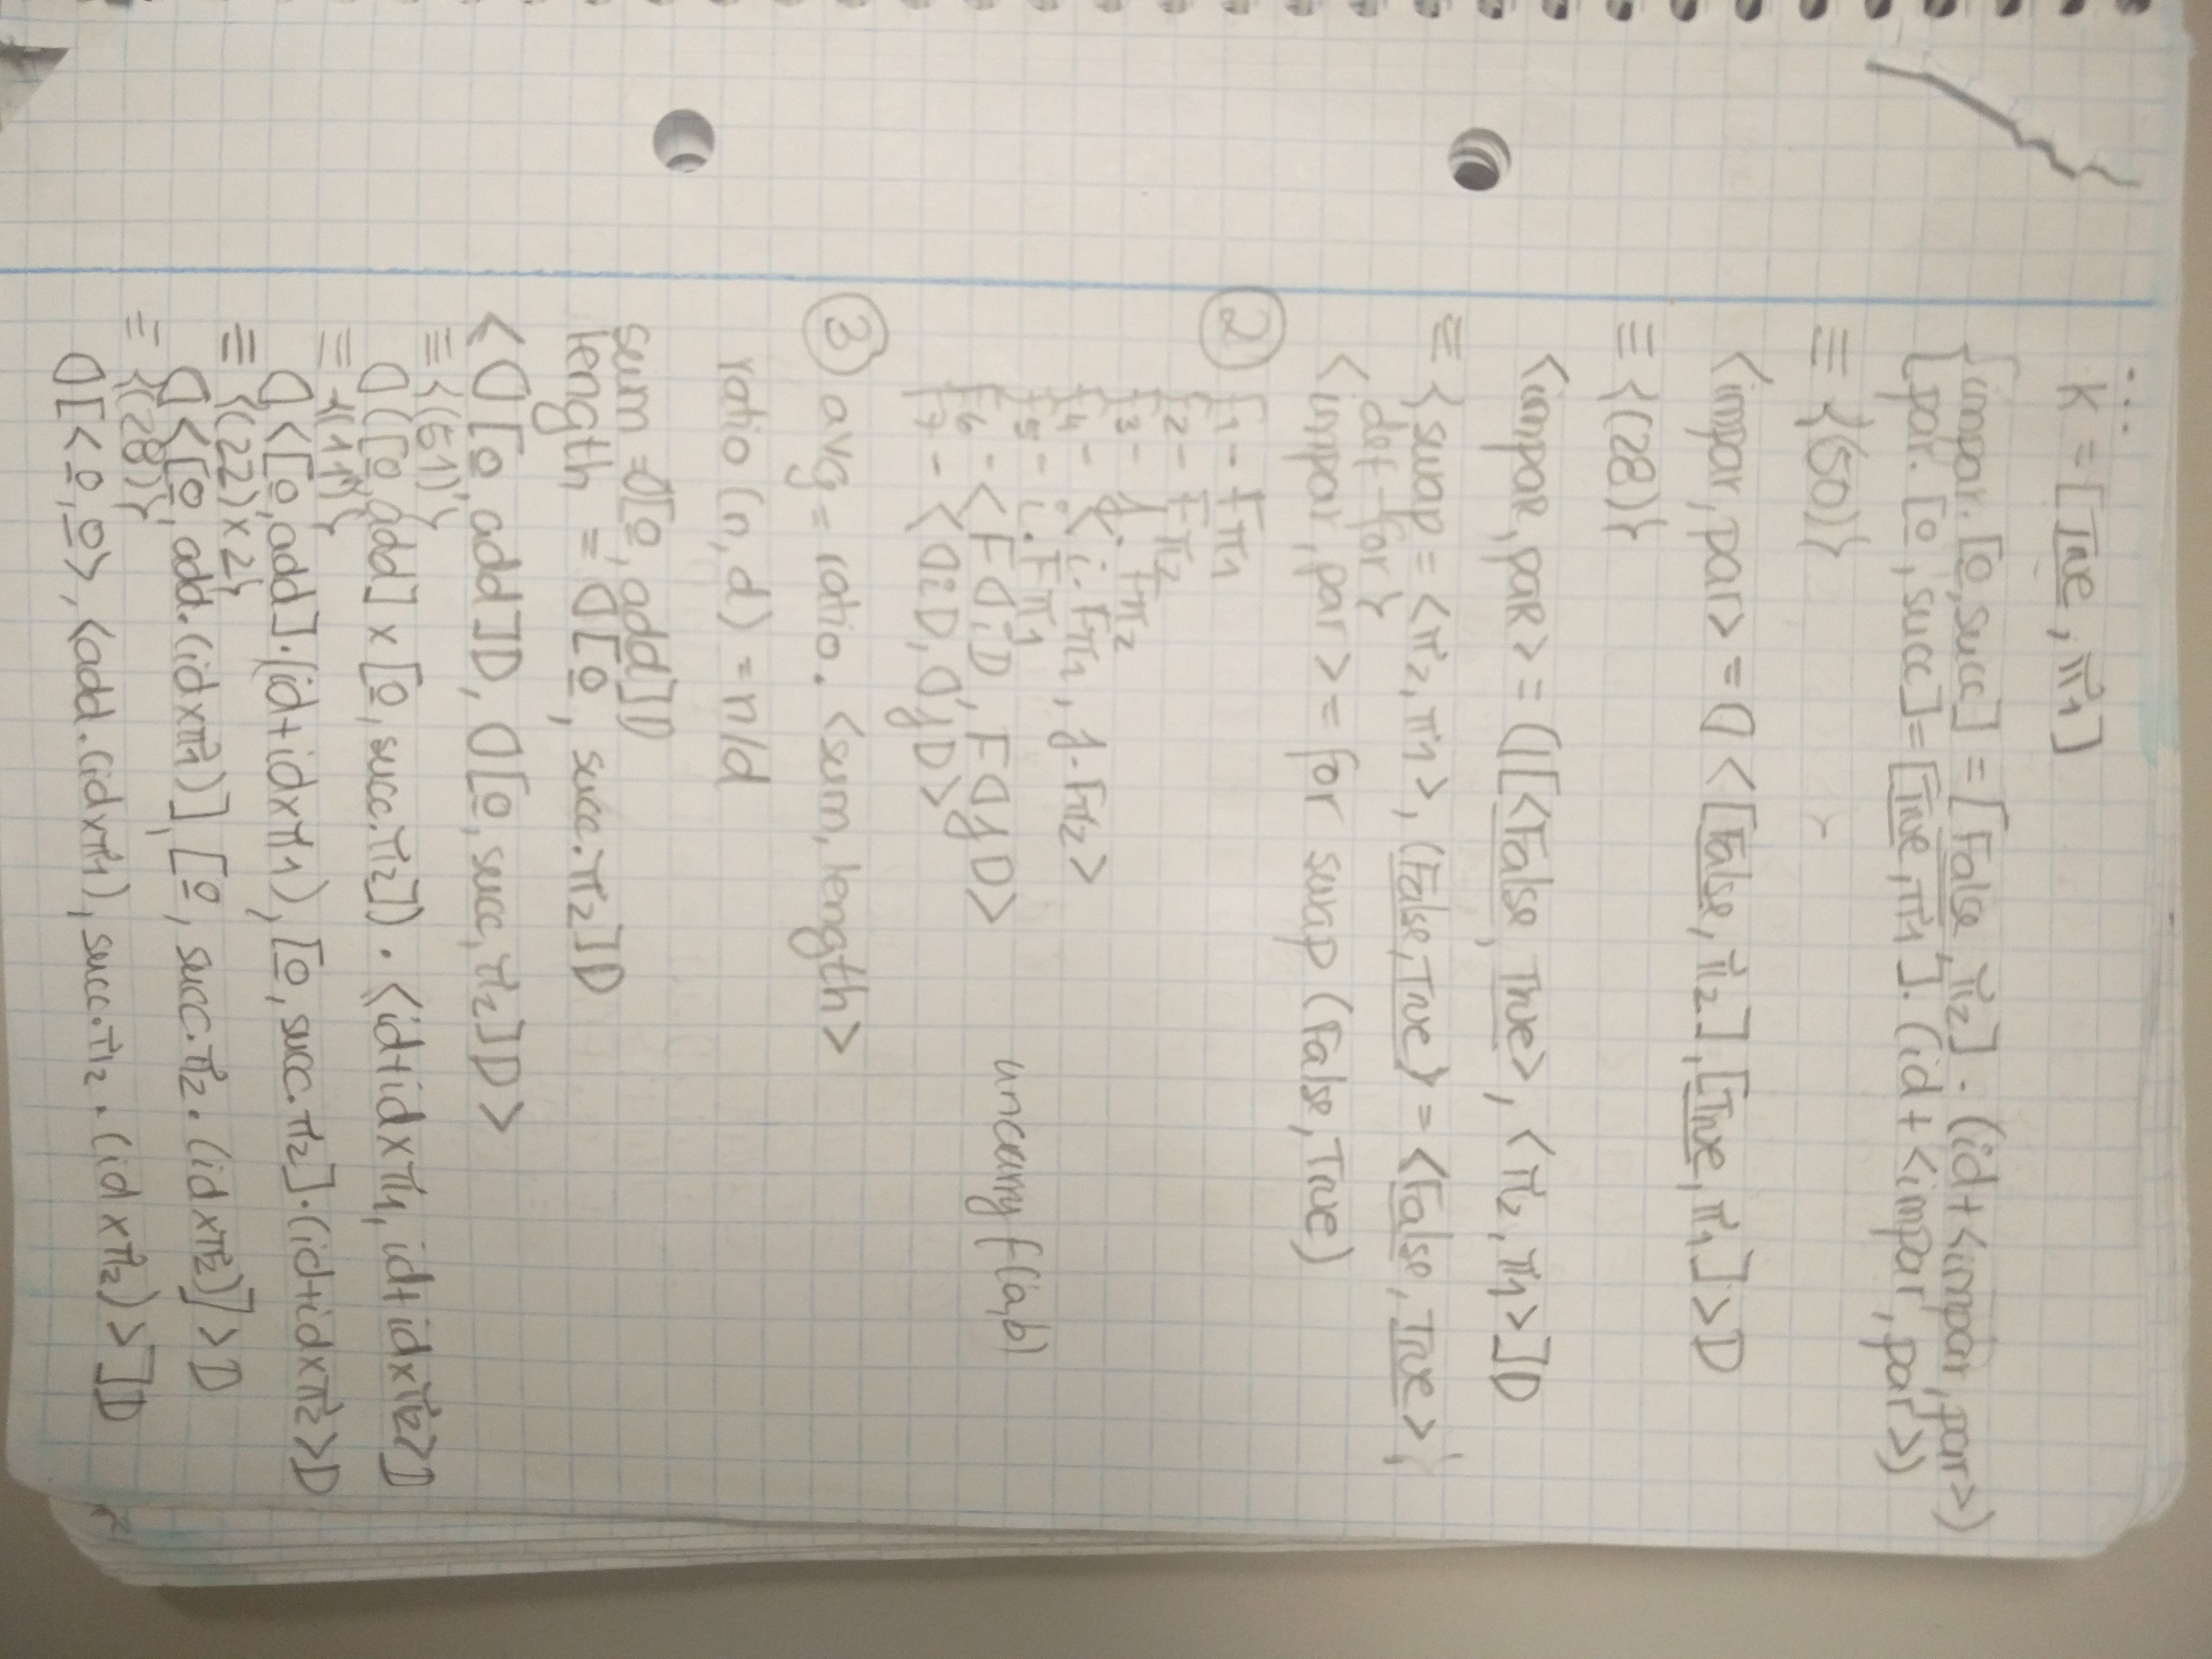 ...
K = [True, π1]
{impar. [0, succ] = [False, π2] . (id+<impar, par>)
{par. [0, succ] = [True, π1]. (id + <impar, par>)
≡ {(50)}
<impar, par> = ⦇<[False, π2], [True, π1]>⦈
≡ {(28)}
<impar, par> = ⦇[<False, True>, <π2, π1>]⦈
≡ {swap = <π2, π1>, (False, True) = <False, True>,
def-for}
<impar, par> = for swap (False, True)
② f1 - Fπ1
f2 - Fπ2
f3 - j. Fπ2
f4 - <i. Fπ1, j. Fπ2>
f5 - i. Fπ1
f6 - <F⦇i⦈, F⦇j⦈> uncurry f(a,b)
f7 - <⦇i⦈, ⦇j⦈>
③ avg = ratio. <sum, length>
ratio (n, d) = n/d
sum = ⦇[0, add]⦈
length = ⦇[0, succ. π2]⦈
<⦇[0, add]⦈, ⦇[0, succ, π2]⦈>
≡ {(51)}
⦇([0, add] x [0, succ. π2]) . <id+id x π1, id+id x π2>⦈
≡ {(11)}
⦇<[0, add].(id+id x π1), [0, succ. π2].(id+id x π2>⦈
≡ {(22) x 2}
⦇<[0, add. (id x π1)], [0, succ. π2. (id x π2)]>⦈
≡ {(28)}
⦇[<0, 0>, <add. (id x π1), succ. π2. (id x π2)>]⦈